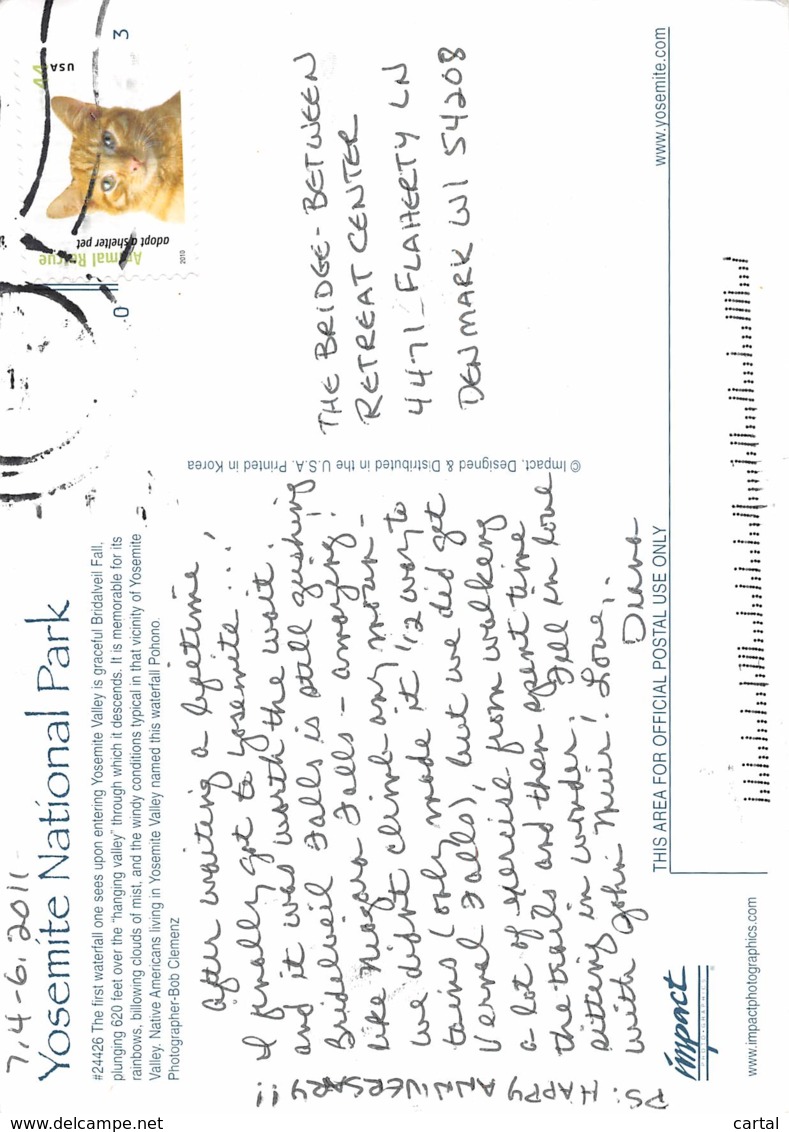 7.4-6.2011
Yosemite National Park
#24426 The first waterfall one sees upon entering Yosemite Valley is graceful Bridalveil Fall,
plunging 620 feet over the "hanging valley" through which it descends. It is memorable for its
rainbows, billowing clouds of mist, and the windy conditions typical in that vicinity of Yosemite
Valley. Native Americans living in Yosemite Valley named this waterfall Pohono.
Photographer-Bob Clemenz
After waiting a lifetime,
I finally got to Yosemite....
and it was worth the wait.
Bridelveil Falls is still gushing
like Niagara Falls - amazing!
We didn't climb any moun-
tains (only made it 1/2 way to
Vernal Falls), but we did get
a lot of exercise from walking
the trails and then spent time
sitting in wonder. Fell in love
with John Muir! Love,
Diana
PS: HAPPY ANNIVERSARY!!
© Impact, Designed & Distributed in the U.S.A. Printed in Korea
0 3
44
USA
Animal Rescue
adopt a shelter pet
2010
THE BRIDGE-BETWEEN
RETREAT CENTER
4471 FLAHERTY LN
DENMARK WI 54208
www.yosemite.com
THIS AREA FOR OFFICIAL POSTAL USE ONLY
impact
PHOTOGRAPHICS
®
www.impactphotographics.com
www.delcampe.net
cartal